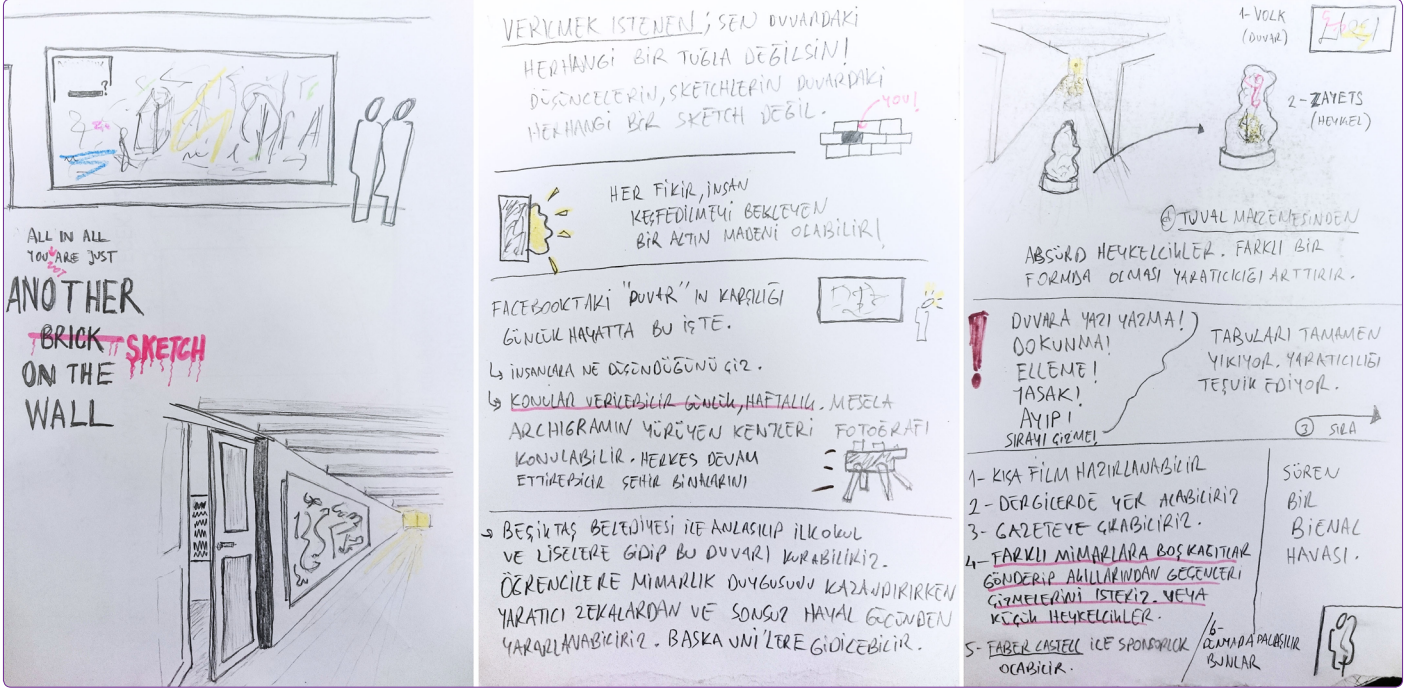 ALL IN ALL
YOU ARE JUST
NOT
ANOTHER
BRICK SKETCH
ON THE
WALL
VERİLMEK İSTENEN; SEN DUVARDAKİ
HERHANGİ BİR TUĞLA DEĞİLSİN!
DÜŞÜNCELERİN, SKETCHLERİN DUVARDAKİ
HERHANGİ BİR SKETCH DEĞİL.
YOU!
HER FİKİR, İNSAN
KEŞFEDİLMEYİ BEKLEYEN
BİR ALTIN MADENİ OLABİLİR!
FACEBOOKTAKİ "DUVAR"IN KARŞILIĞI
GÜNLÜK HAYATTA BU İŞTE.
İNSANLARA NE DÜŞÜNDÜĞÜNÜ ÇİZ.
KONULAR VERİLEBİLİR GÜNLÜK, HAFTALIK. MESELA
ARCHIGRAMIN YÜRÜYEN KENTLERİ FOTOĞRAFI
KONULABİLİR. HERKES DEVAM
ETTİREBİLİR ŞEHİR BİNALARINI
BEŞİKTAŞ BELEDİYESİ İLE ANLAŞILIP İLKOKUL
VE LİSELERE GİDİP BU DUVARI KURABİLİRİZ.
ÖĞRENCİLERE MİMARLIK DUYGUSUNU KAZANDIRIRKEN
YARATICI ZEKALARDAN VE SONSUZ HAYAL GÜCÜNDEN
YARARLANABİLİRİZ. BAŞKA UNİ'LERE GİDİLEBİLİR.
1- VOLK
(DUVAR)
2- ZAYETS
(HEYKEL)
TUVAL MALZEMESİNDEN
ABSÜRD HEYKELCİKLER. FARKLI BİR
FORMDA OLMASI YARATICILIĞI ARTTIRIR.
!
DUVARA YAZI YAZMA!
DOKUNMA!
ELLEME!
YASAK!
AYIP!
SIRAYI ÇİZME!
TABULARI TAMAMEN
YIKIYOR. YARATICILIĞI
TEŞVİK EDİYOR.
3 SIRA
1- KISA FİLM HAZIRLANABİLİR
2- DERGİLERDE YER ALABİLİRİZ
3- GAZETEYE ÇIKABİLİRİZ.
4- FARKLI MİMARLARA BOŞ KAĞITLAR
GÖNDERİP AKILLARINDAN GEÇENLERİ
ÇİZMELERİNİ İSTERİZ. VEYA
KÜÇÜK HEYKELCİKLER.
5- FABER CASTELL İLE SPONSORLUK
OLABİLİR.
6-
BUNLAR
SÜREN
BİR
BİENAL
HAVASI.